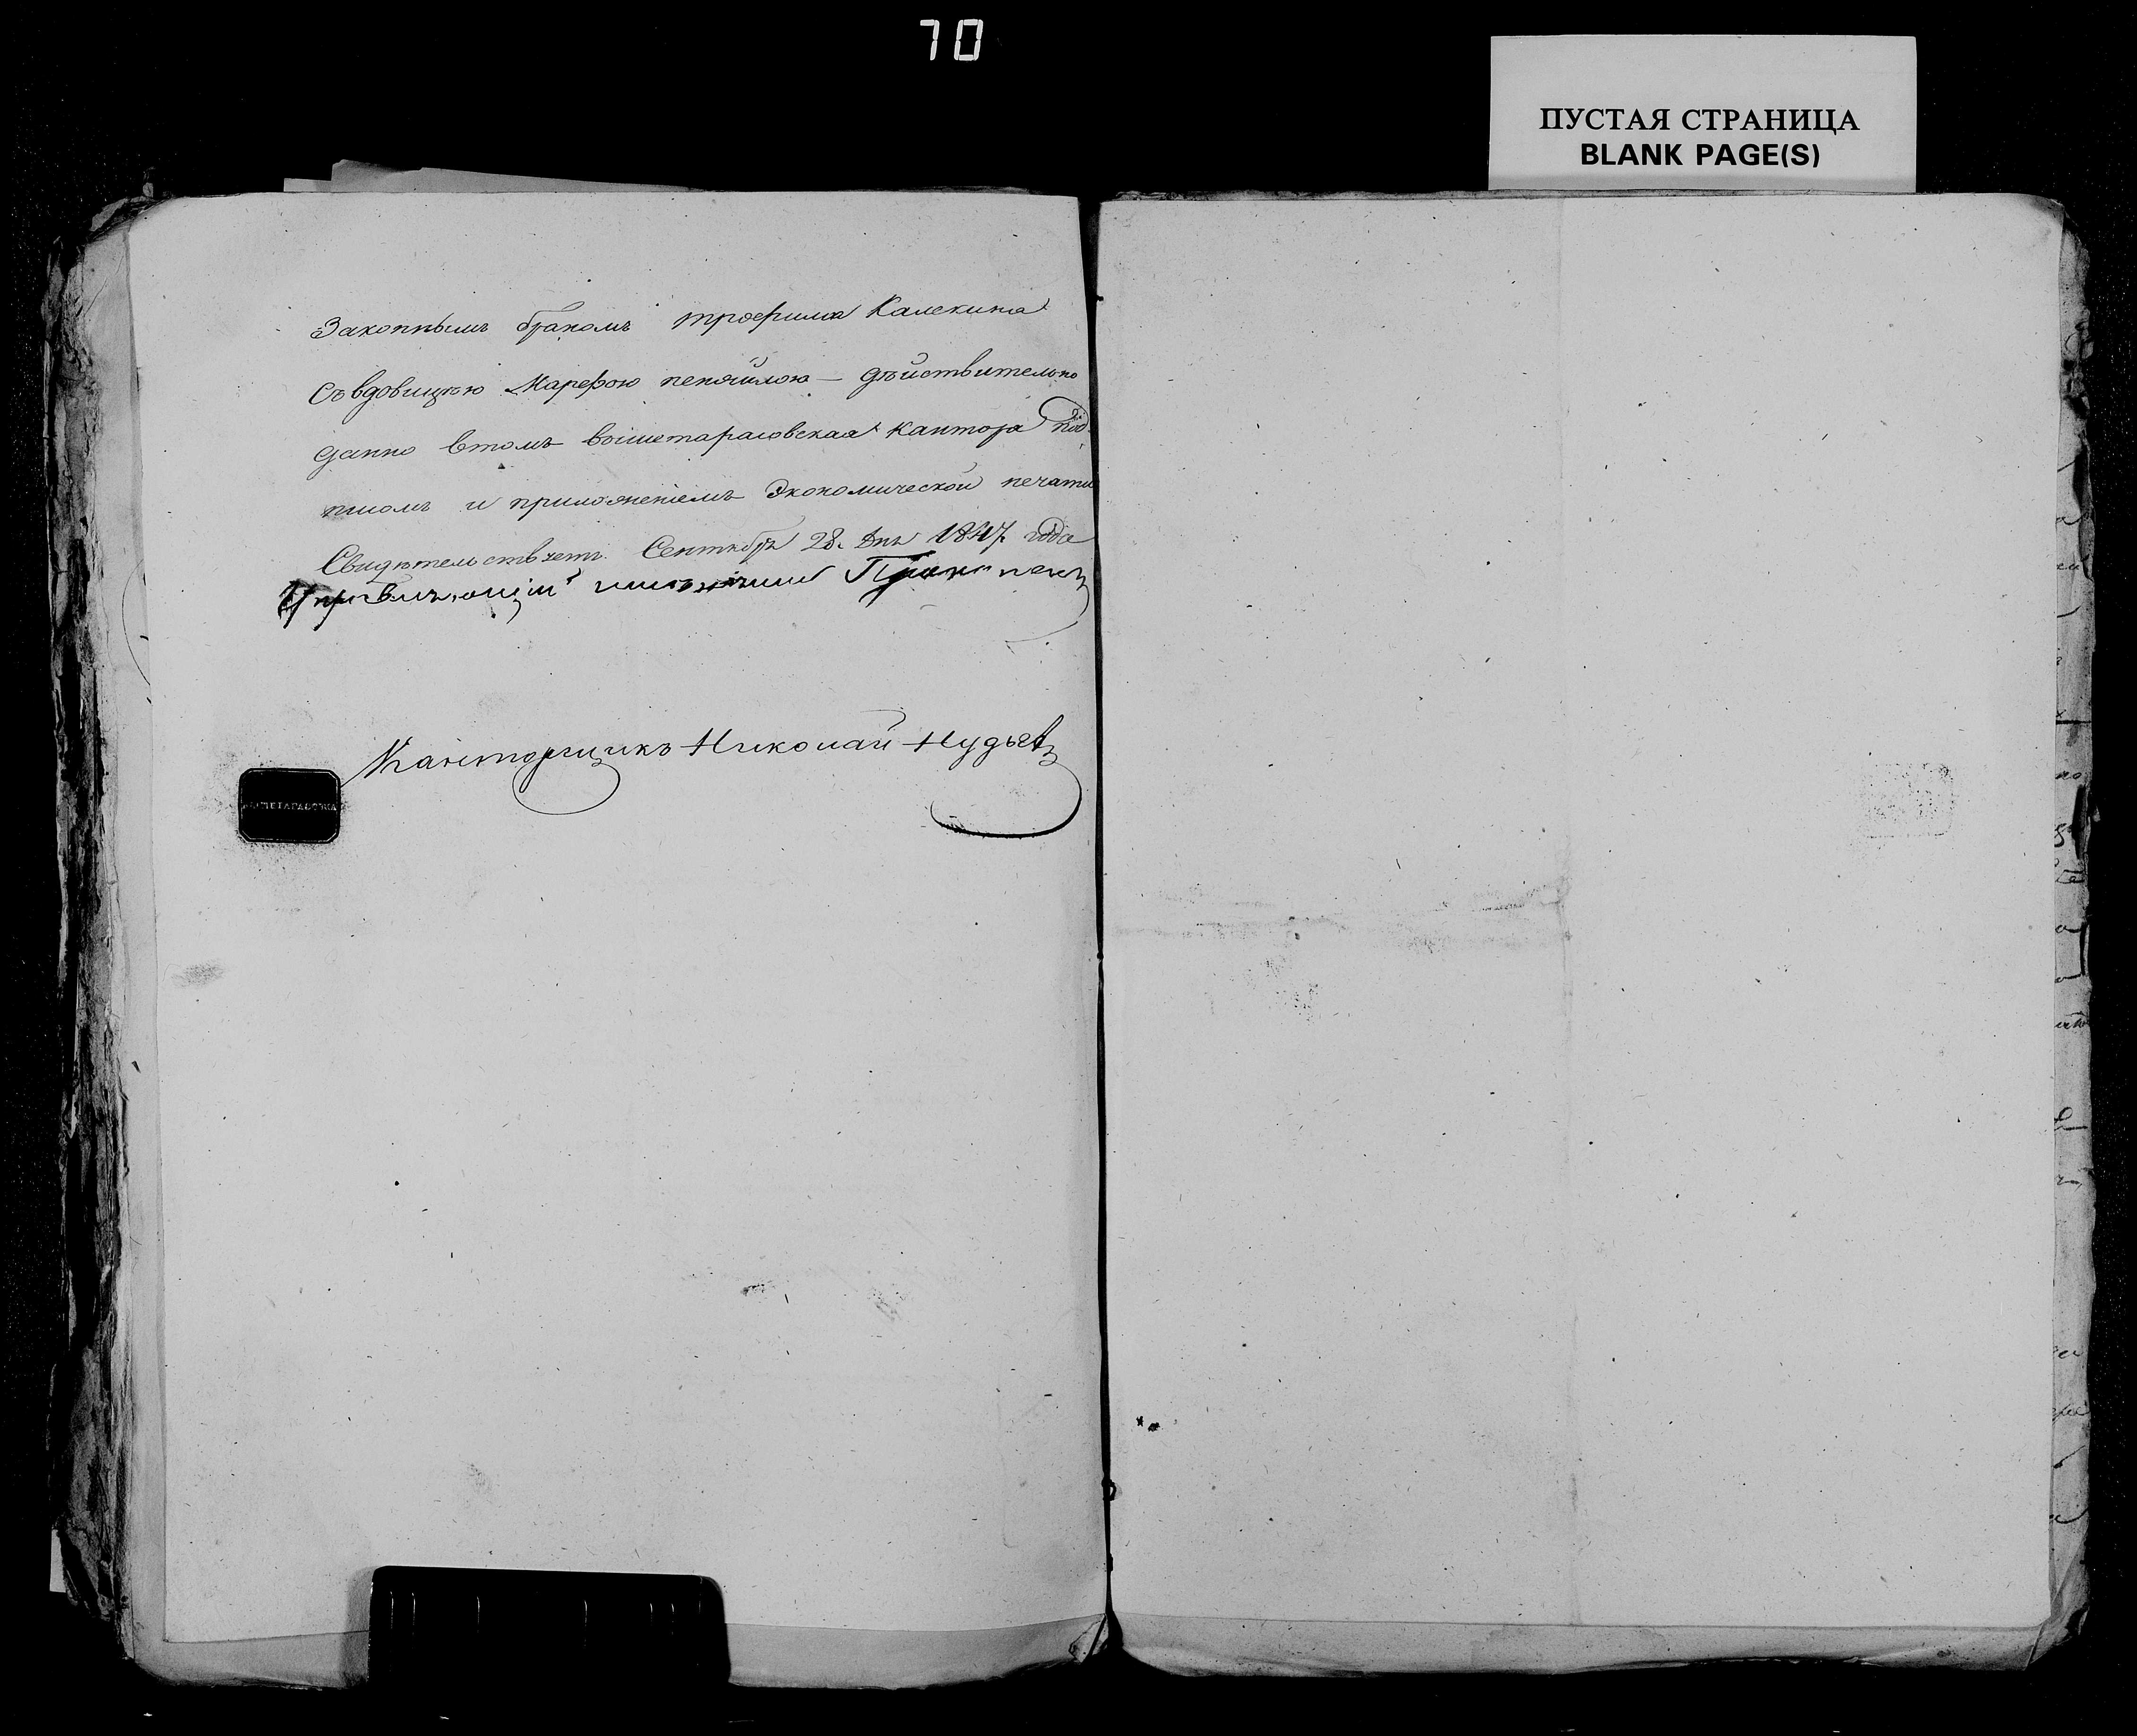 70
ПУСТАЯ СТРАНИЦА
BLANK PAGE(S)
Законнымъ бракомъ трофима Калекина
Съ вдовицѣю Марефою пекяйлою — дѣйствительно
данно втомъ вышетарасовская кантора под
писомъ и приложеніемъ Экономической печати
Свидѣтельствуетъ. Сентября 28. Дня 1847 года
Управляющій имѣніями
Канторщикъ Николай Нудьга
ВЫШЕТАРАСОВКА